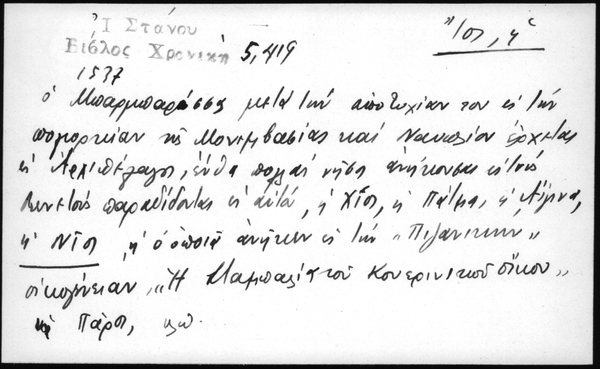 Ἰ Στάνου
Βιβλος Χρονικὴ 5,419
Ἴος, ἡ
1537
ὁ Μπαρμπαρόσσα μετὰ τὴν ἀποτυχίαν του εἰς τὴν
πολιορκίαν τῆς Μονεμβασίας καὶ Ναυπλίου ἔρχεται
εἰς Ἀρχιπέλαγος, ἔνθα πολλαὶ νῆσοι ἀνήκουσαι εἰς τοὺς
Βενετοὺς παραδίδονται εἰς αὐτὸ, ἡ Χῖος, ἡ Πάτμος, ἡ Αἴγινα,
ἡ Νῖος, ἡ ὁποία ἀνῆκεν εἰς τὴν "Πιζανικην"
οἰκογένειαν, "Ἡ τοῦ Κουερινικοῦ οἴκου"
ἡ Πάρος, κλπ.